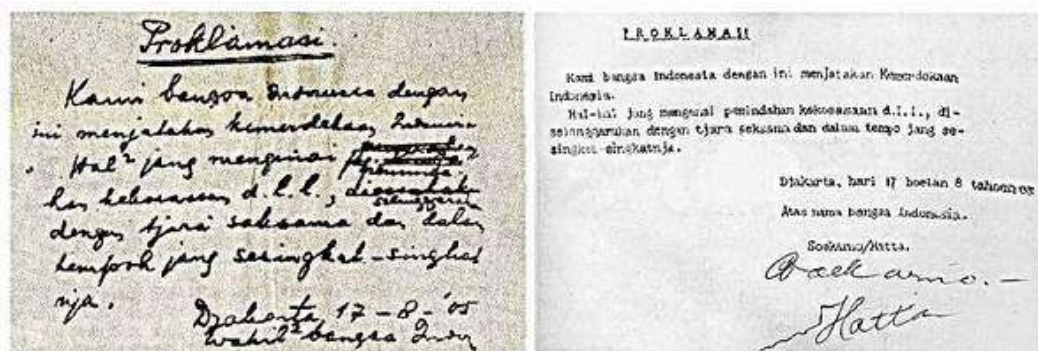 Proklamasi.
Kami bangsa Indonesia dengan
ini menjatakan kemerdekaan
Hal² jang mengenai
kekoeasaan d.l.l.,
dengan tjara saksama dan dalam
tempoh jang sesingkat-singkat
nja.
Djakarta 17 - 8 - '05
Wakil² bangsa Indon
PROKLAMASI
Kami bangsa Indonesia dengan ini menjatakan Kemerdekaan
Indonesia.
Hal-hal jang mengenai pemindahan kekoeasaan d.l.l., di-
selenggarakan dengan tjara seksama dan dalam tempo jang se-
singkat-singkatnja.
Djakarta, hari 17 boelan 8 tahoen 05
Atas nama bangsa Indonesia.
Soekarno/Hatta.
Soekarno.-
Hatta